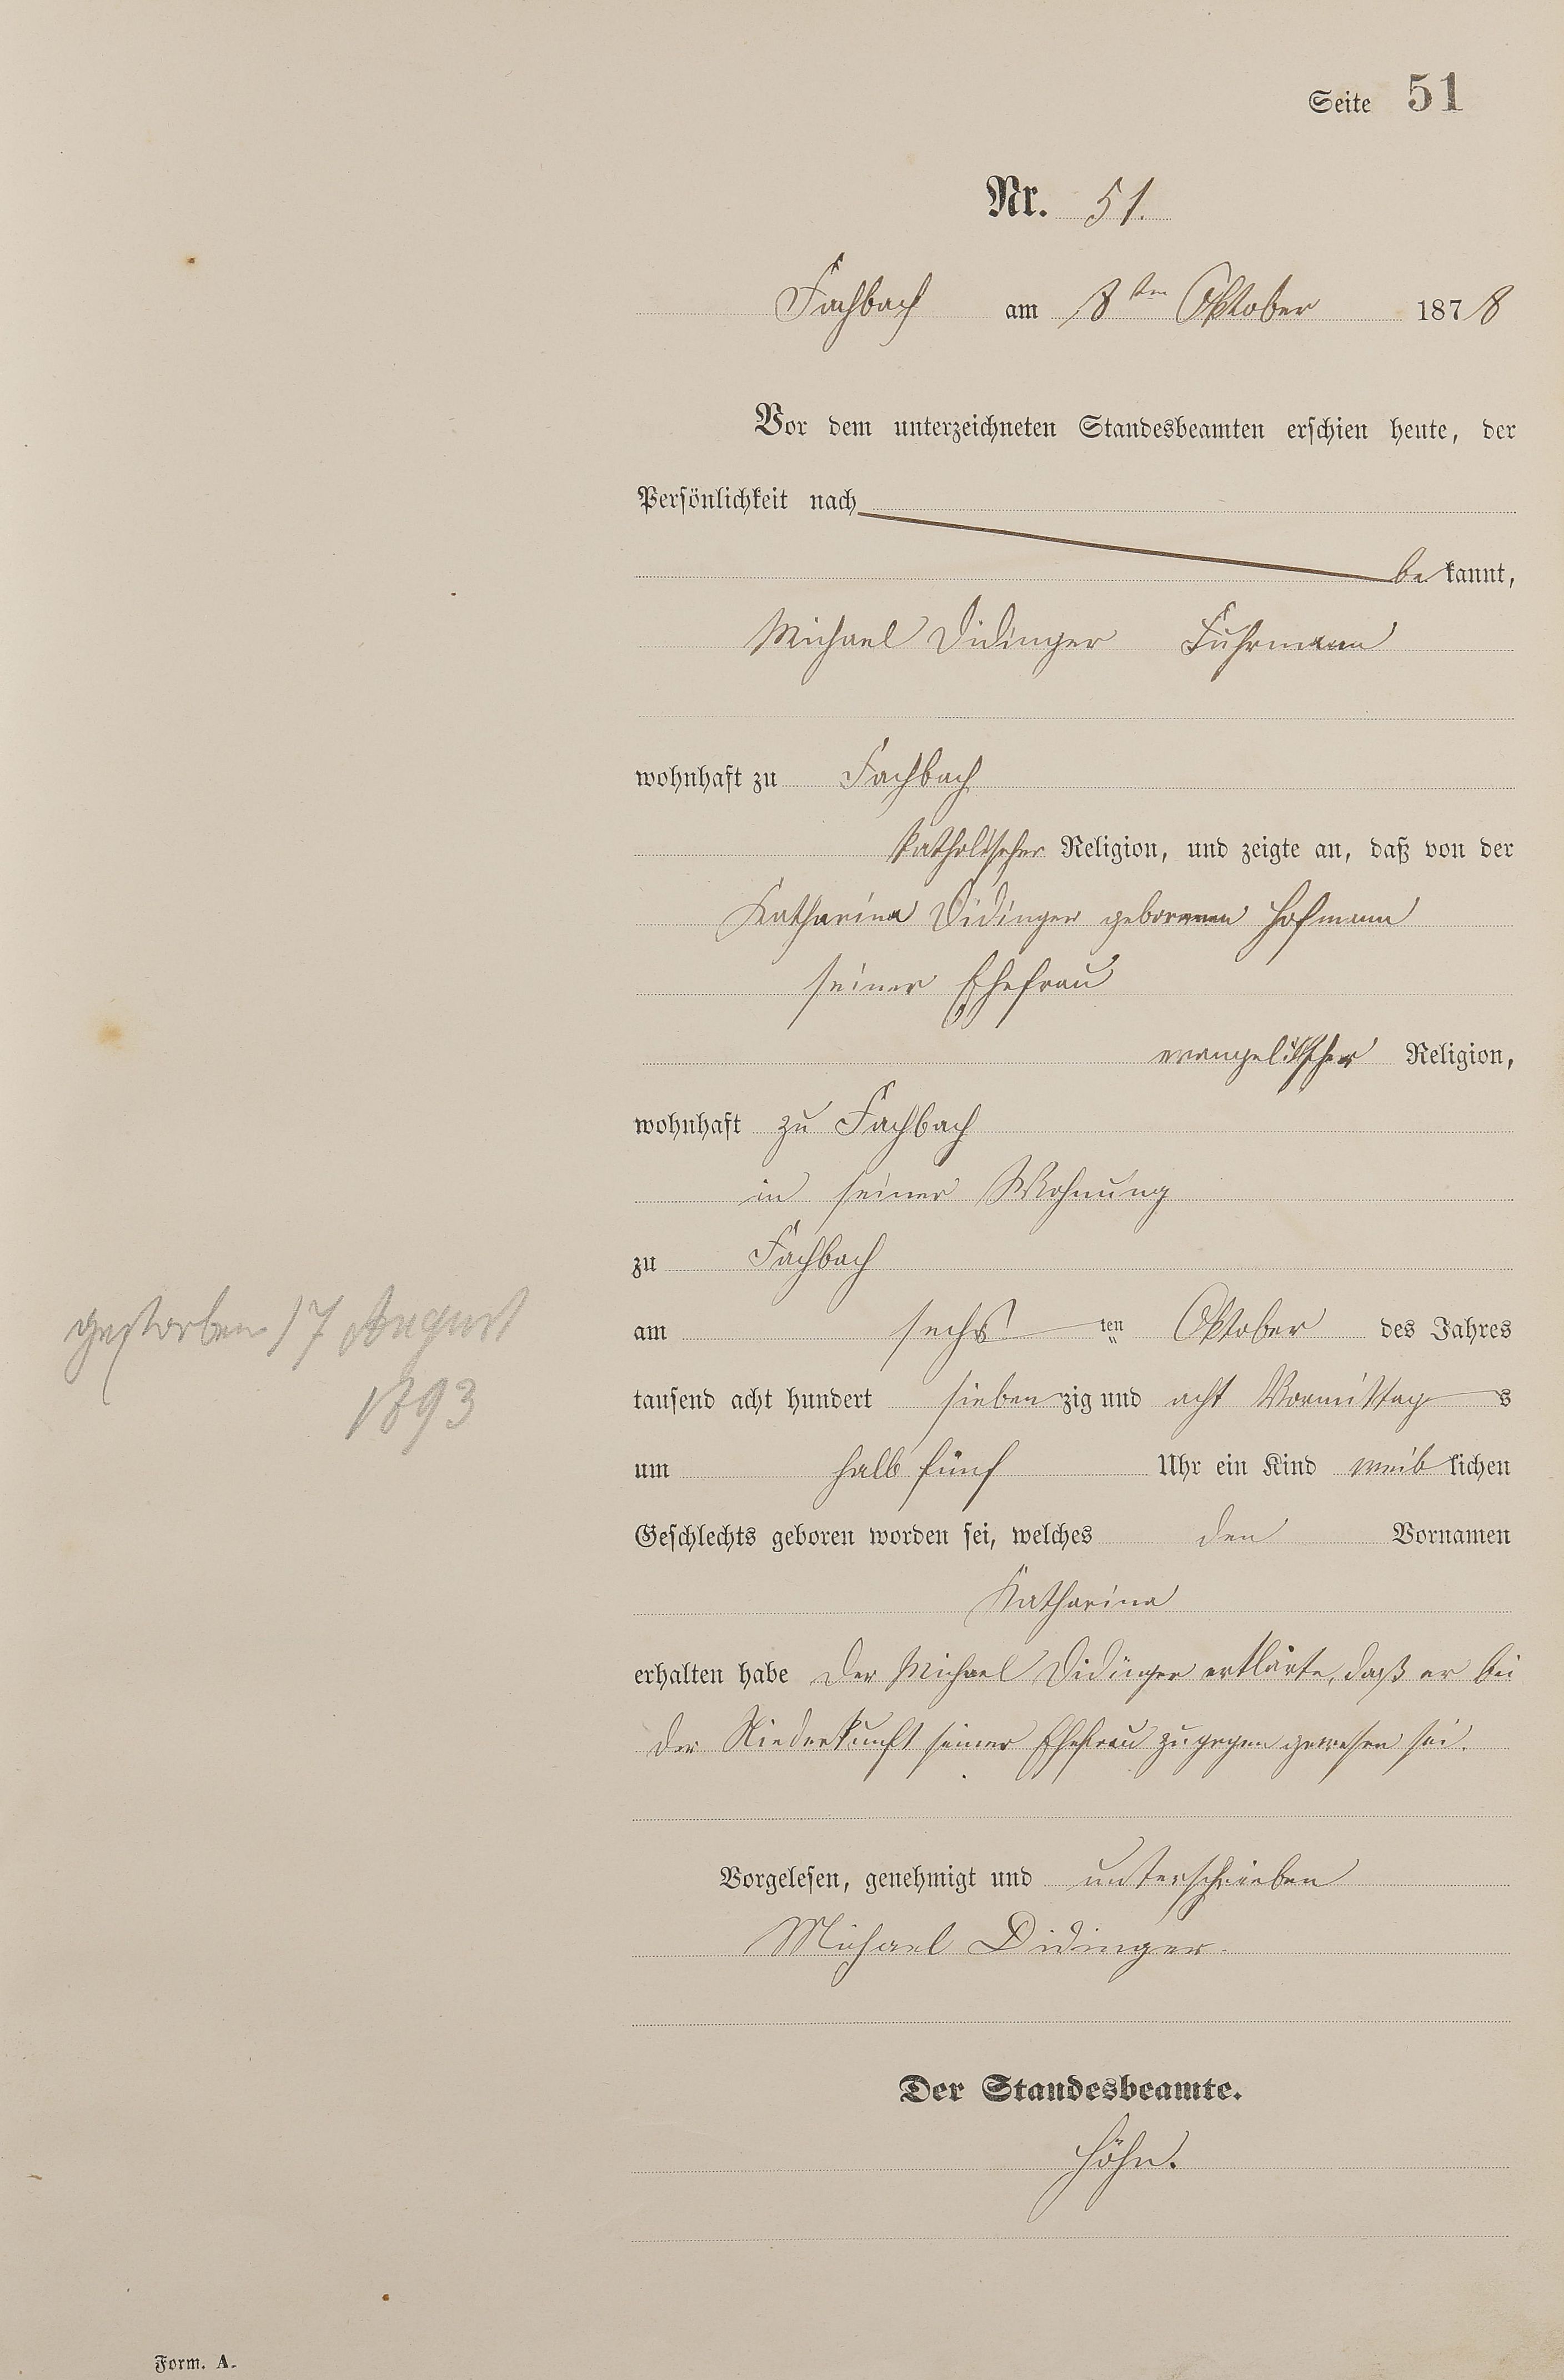 Seite 51
Nr. 51.
Fachbach am 8ten Oktober 1878
Vor dem unterzeichneten Standesbeamten erschien heute, der
Persönlichkeit nach
bekannt,
Michael Didinger Fuhrmann
wohnhaft zu Fachbach
katholischer Religion, und zeigte an, daß von der
Katharina Didinger geborenen Hofmann
seiner Ehefrau
evangelischer Religion,
wohnhaft zu Fachbach
in seiner Wohnung
zu Fachbach
gestorben 17 August
1893
am sechsten Oktober des Jahres
tausend acht hundert siebenzig und acht Vormittags
um halb fünf Uhr ein Kind weiblichen
Geschlechts geboren worden sei, welches den Vornamen
Katharina
erhalten habe Der Michael Didinger erklärte, daß er bei
der Niederkunft seiner Ehefrau zugegen gewesen sei.
Vorgelesen, genehmigt und unterschrieben
Michael Didinger.
Der Standesbeamte.
Höhn.
Form. A.